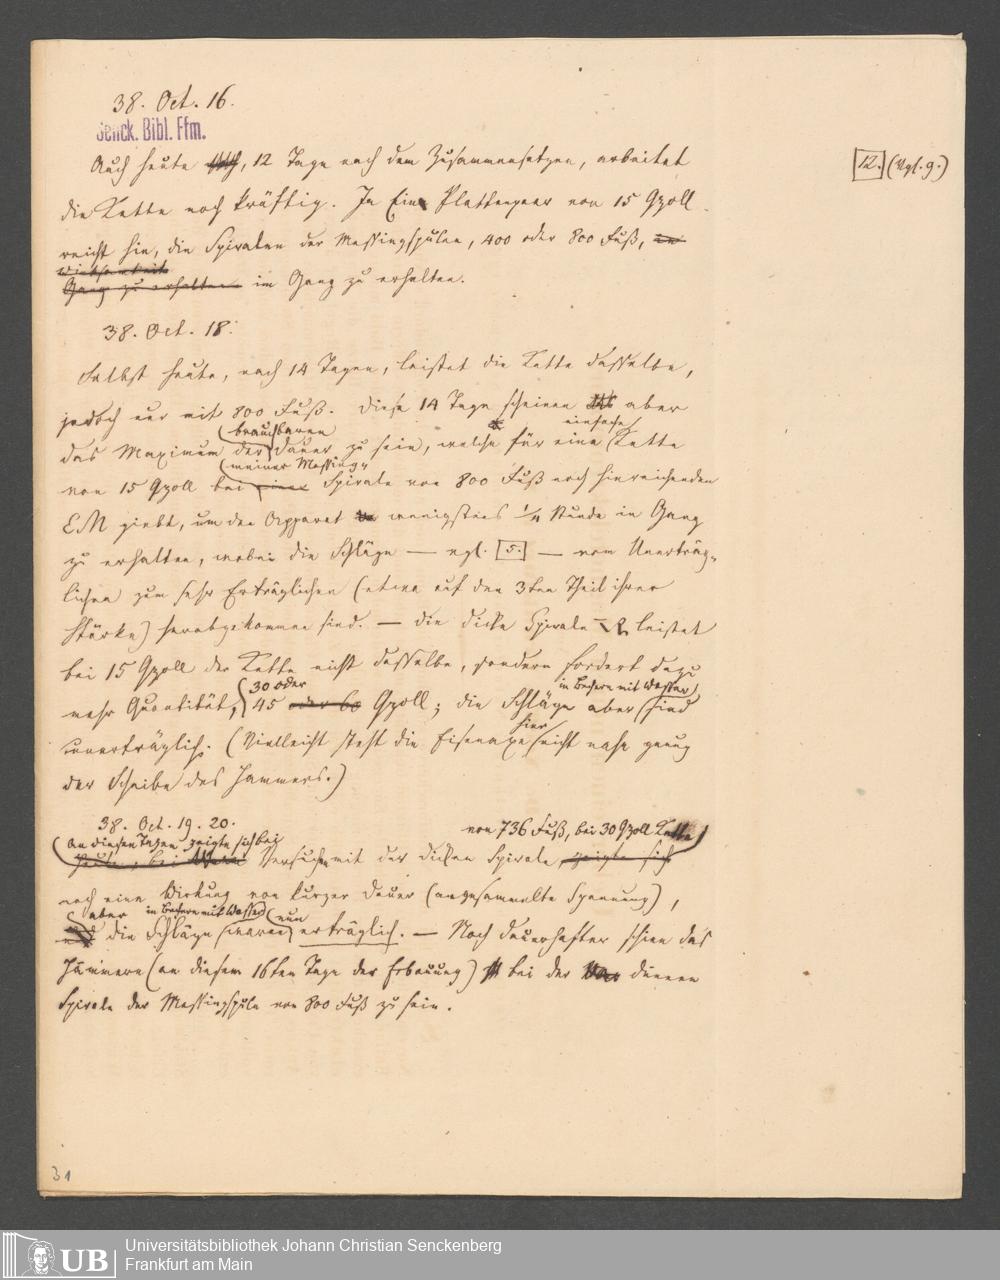 38. Oct. 16.
Senck. Bibl. Ffm.
12. (Vgl. 9.)
Auch heute, 12 Tage nach dem Zusammensetzen, arbeitet
die Kette noch kräftig. Ja Ein Plattenpaar von 15 Qzoll
reicht hin, die Spiralen der Messingspulen, 400 oder 800 Fuß, in
Wirksamkeit
Gang zu erhalten im Gang zu erhalten.
38. Oct. 18.
Selbst heute, nach 14 Tagen, leistet die Kette dasselbe,
jedoch nur mit 800 Fuß. Diese 14 Tage scheinen aber
brauchbaren einfache
das Maximum der Dauer zu sein, welche für eine Kette
meiner Messing-
von 15 Qzoll bei einer Spirale von 800 Fuß noch hinreichenden
EM giebt, um den Apparat wenigstens 1/4 Stunde in Gang
zu erhalten, wobei die Schläge — vgl. 5. — vom Unerträg-
lichen zum sehr Erträglichen (etwa auf den 3ten Theil ihrer
Stärke) herabgekommen sind. — Die dicke Spirale leistet
bei 15 Qzoll der Kette nicht dasselbe, sondern fordert dazu
30 oder in Bechern mit Wasser
mehr Quantität, 45 oder 60 Qzoll; die Schläge aber sind
hier
unerträglich. (Vielleicht steht die Eisenaxe nicht nahe genug
der Scheibe des Hammers.)
38. Oct. 19. 20.
An diesen Tagen zeigte sich bei von 736 Fuß, bei 30 Qzoll Kette
Heute, bei Versuchen mit der dicken Spirale, zeigte sich
noch eine Wirkung von kurzer Dauer (angesammelte Spannung),
aber in Bechern mit Wasser nun
und die Schläge waren erträglich. — Noch dauerhafter schien das
Hämmern (an diesem 16ten Tage der Erbauung) bei der dünnen
Spirale der Messingspule von 800 Fuß zu sein.
31
UB
Universitätsbibliothek Johann Christian Senckenberg
Frankfurt am Main